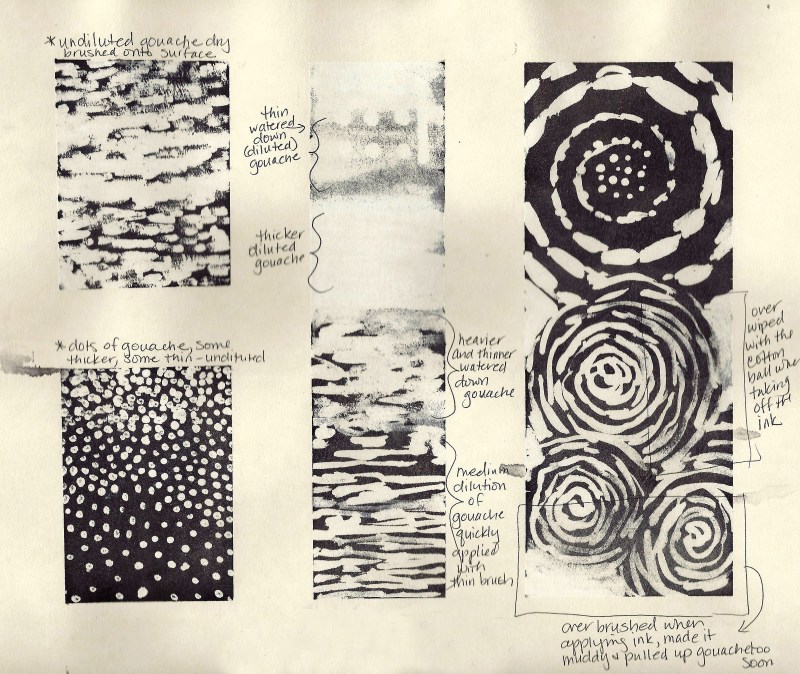 *undiluted gouache dry
brushed onto surface
thin
watered
down
(diluted)
gouache
thicker
diluted
gouache
*dots of gouache, some
thicker, some thin-undiluted
heavier
and thinner
watered
down
gouache
medium
dilution
of
gouache
quickly
applied
with
thin brush
over
wiped
with the
cotton
ball when
taking
off the
ink
over brushed when
applying ink, made it
muddy & pulled up gouache too
soon